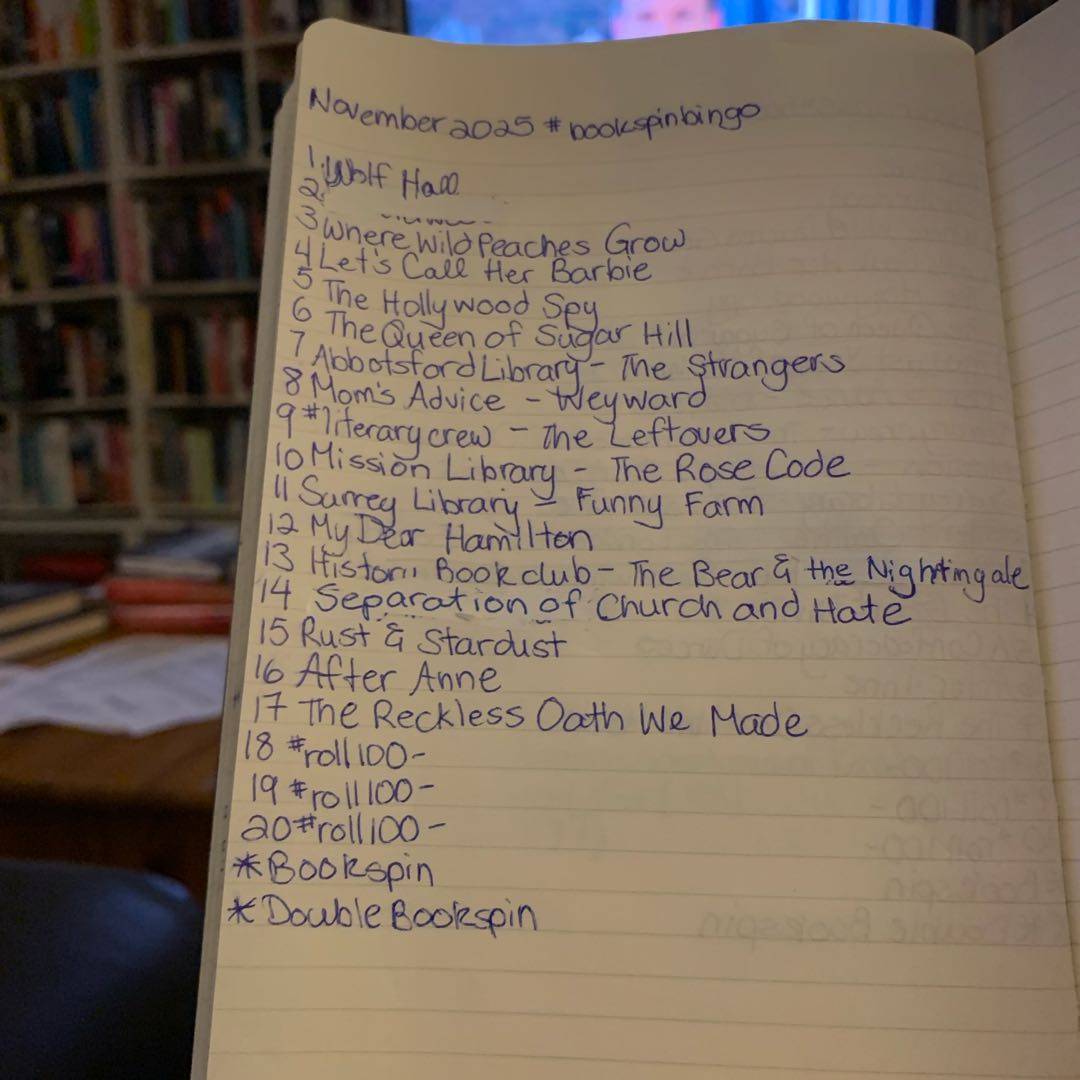 November 2025 #bookspinbingo
1. Wolf Hall
2.
3 Where Wild Peaches Grow
4 Let's Call Her Barbie
5 The Hollywood Spy
6 The Queen of Sugar Hill
7 Abbotsford Library - The Strangers
8 Mom's Advice - Weyward
9 #literarycrew - The Leftovers
10 Mission Library - The Rose Code
11 Surrey Library - Funny Farm
12 My Dear Hamilton
13 Bookclub - The Bear & the Nightingale
14 Separation of Church and Hate
15 Rust & Stardust
16 After Anne
17 The Reckless Oath We Made
18 #roll100-
19 #roll100-
20 #roll100-
*Bookspin
*Double Bookspin